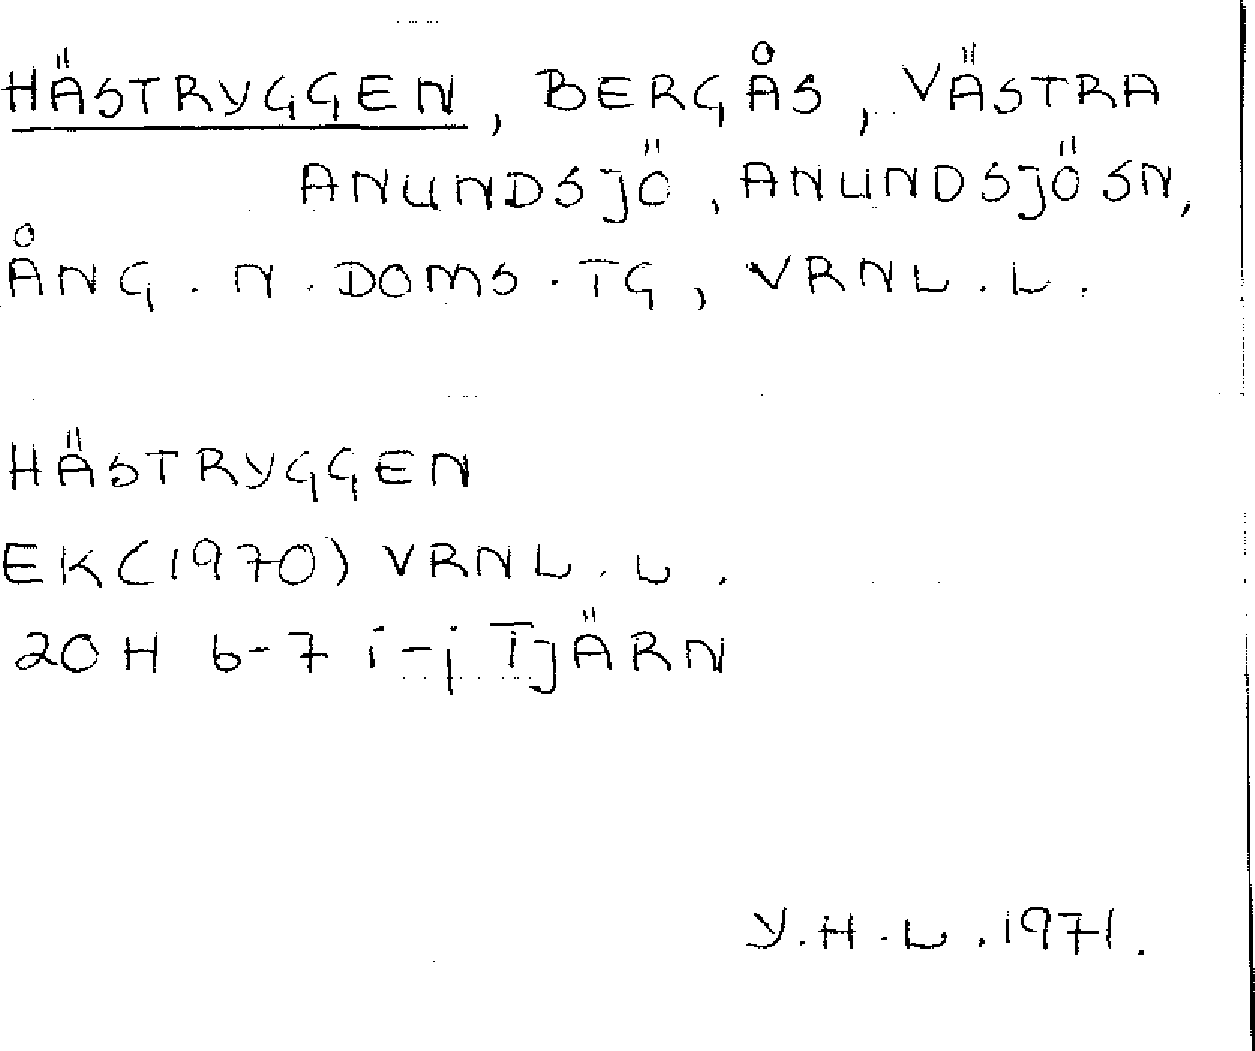 HÄSTRYGGEN, BERGÅS, VÄSTRA
ANUNDSJÖ, ANUNDSJÖ SN,
ÅNG. N. DOMS. TG, VRNL. L.
HÄSTRYGGEN
EK(1970) VRNL. L.
20H 6-7 i-j TJÄRN
Y.H.L. 1971.